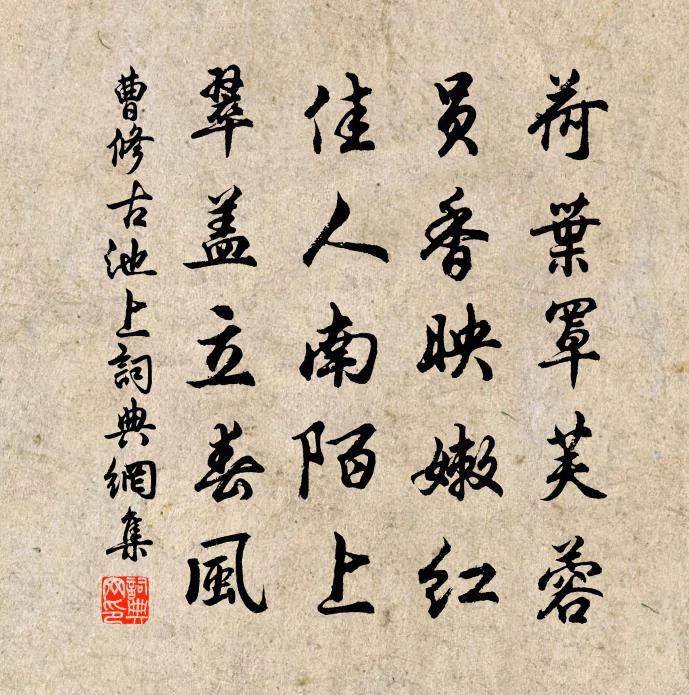 荷葉罩芙蓉
员香映嫩红
佳人南陌上
翠盖立春風
曹修古池上詞典網集
詞典网印